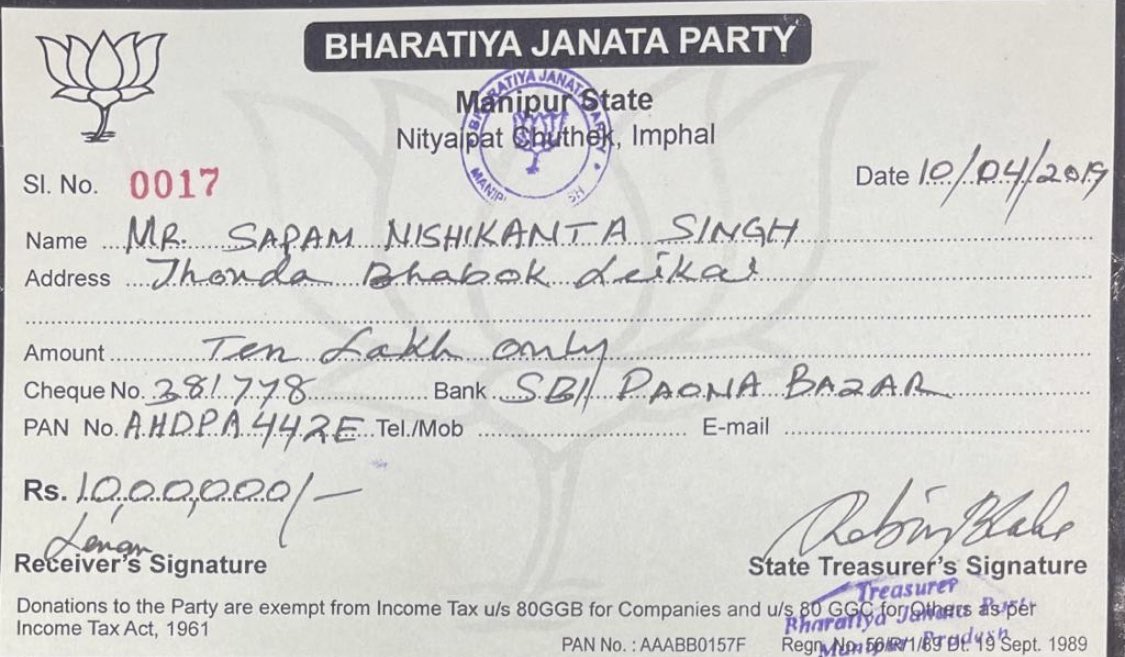 BHARATIYA JANATA PARTY
Manipur State
Nityaipat Chuthek, Imphal
BHARATIYA JANATA PARTY
Sl. No. 0017
Date 10/04/2019
Name MR. SAPAM NISHIKANTA SINGH
Address Thonda Bhabok Leikai
Amount Ten Lakh only
Cheque No. 381778 Bank SBI PAONA BAZAR
PAN No. AHDPA442E Tel./Mob E-mail
Rs. 10,00,000/-
Receiver's Signature
State Treasurer's Signature
Treasurer
Bharatiya Janata Party
Manipur Pradesh
Donations to the Party are exempt from Income Tax u/s 80GGB for Companies and u/s 80 GGC for Others as per
Income Tax Act, 1961
PAN No. : AAABB0157F Regn. No. 56/R/1/89 Dt. 19 Sept. 1989